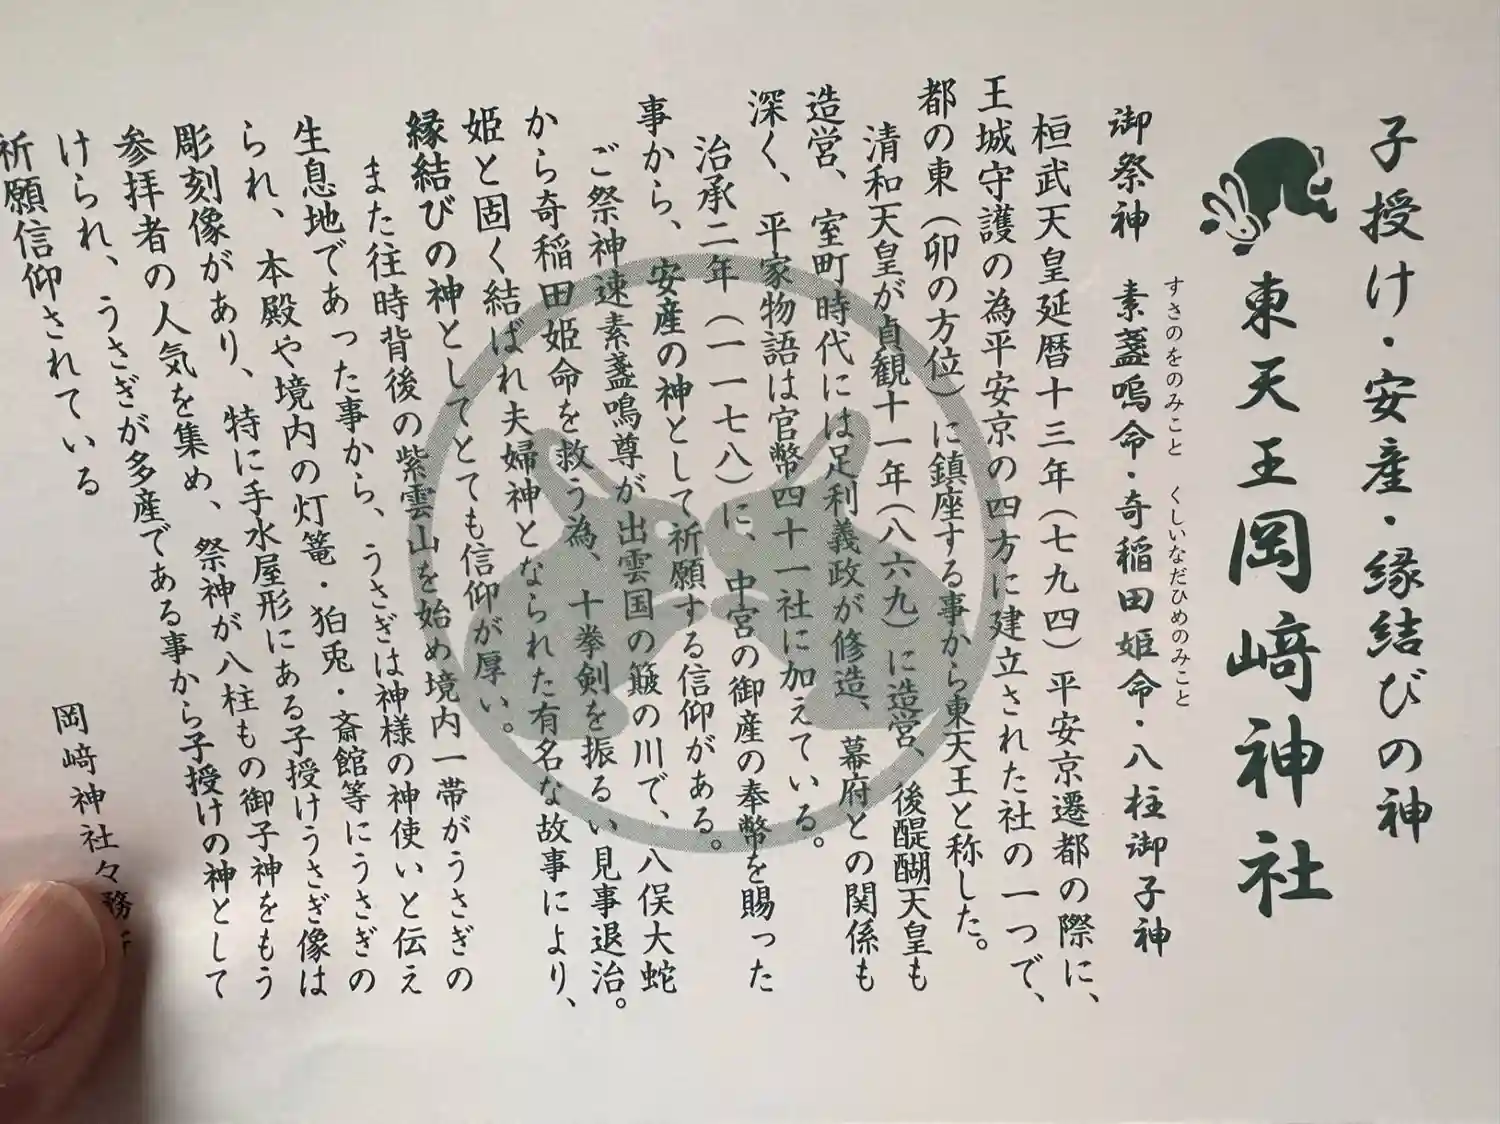 子授け・安産・縁結びの神
東天王岡﨑神社
すさのをのみこと くしいなだひめのみこと
御祭神 素盞嗚命・奇稲田姫命・八柱御子神
桓武天皇延暦十三年（七九四）平安京遷都の際に、
王城守護の為平安京の四方に建立された社の一つで、
都の東（卯の方位）に鎮座する事から東天王と称した。
清和天皇が貞観十一年（八六九）に造営、後醍醐天皇も
造営、室町時代には足利義政が修造、幕府との関係も
深く、平家物語は官幣四十一社に加えている。
治承二年（一一七八）に、中宮の御産の奉幣を賜った
事から、安産の神として祈願する信仰がある。
ご祭神速素盞鳴尊が出雲国の簸の川で、八俣大蛇
から奇稲田姫命を救う為、十拳剣を振るい見事退治。
姫と固く結ばれ夫婦神となられた有名な故事により、
縁結びの神としてとても信仰が厚い。
また往時背後の紫雲山を始め境内一帯がうさぎの
生息地であった事から、うさぎは神様の神使いと伝え
られ、本殿や境内の灯篭・狛兎・斎館等にうさぎの
彫刻像があり、特に手水屋形にある子授けうさぎ像は
参拝者の人気を集め、祭神が八柱もの御子神をもう
けられ、うさぎが多産である事から子授けの神として
祈願信仰されている
岡﨑神社々務